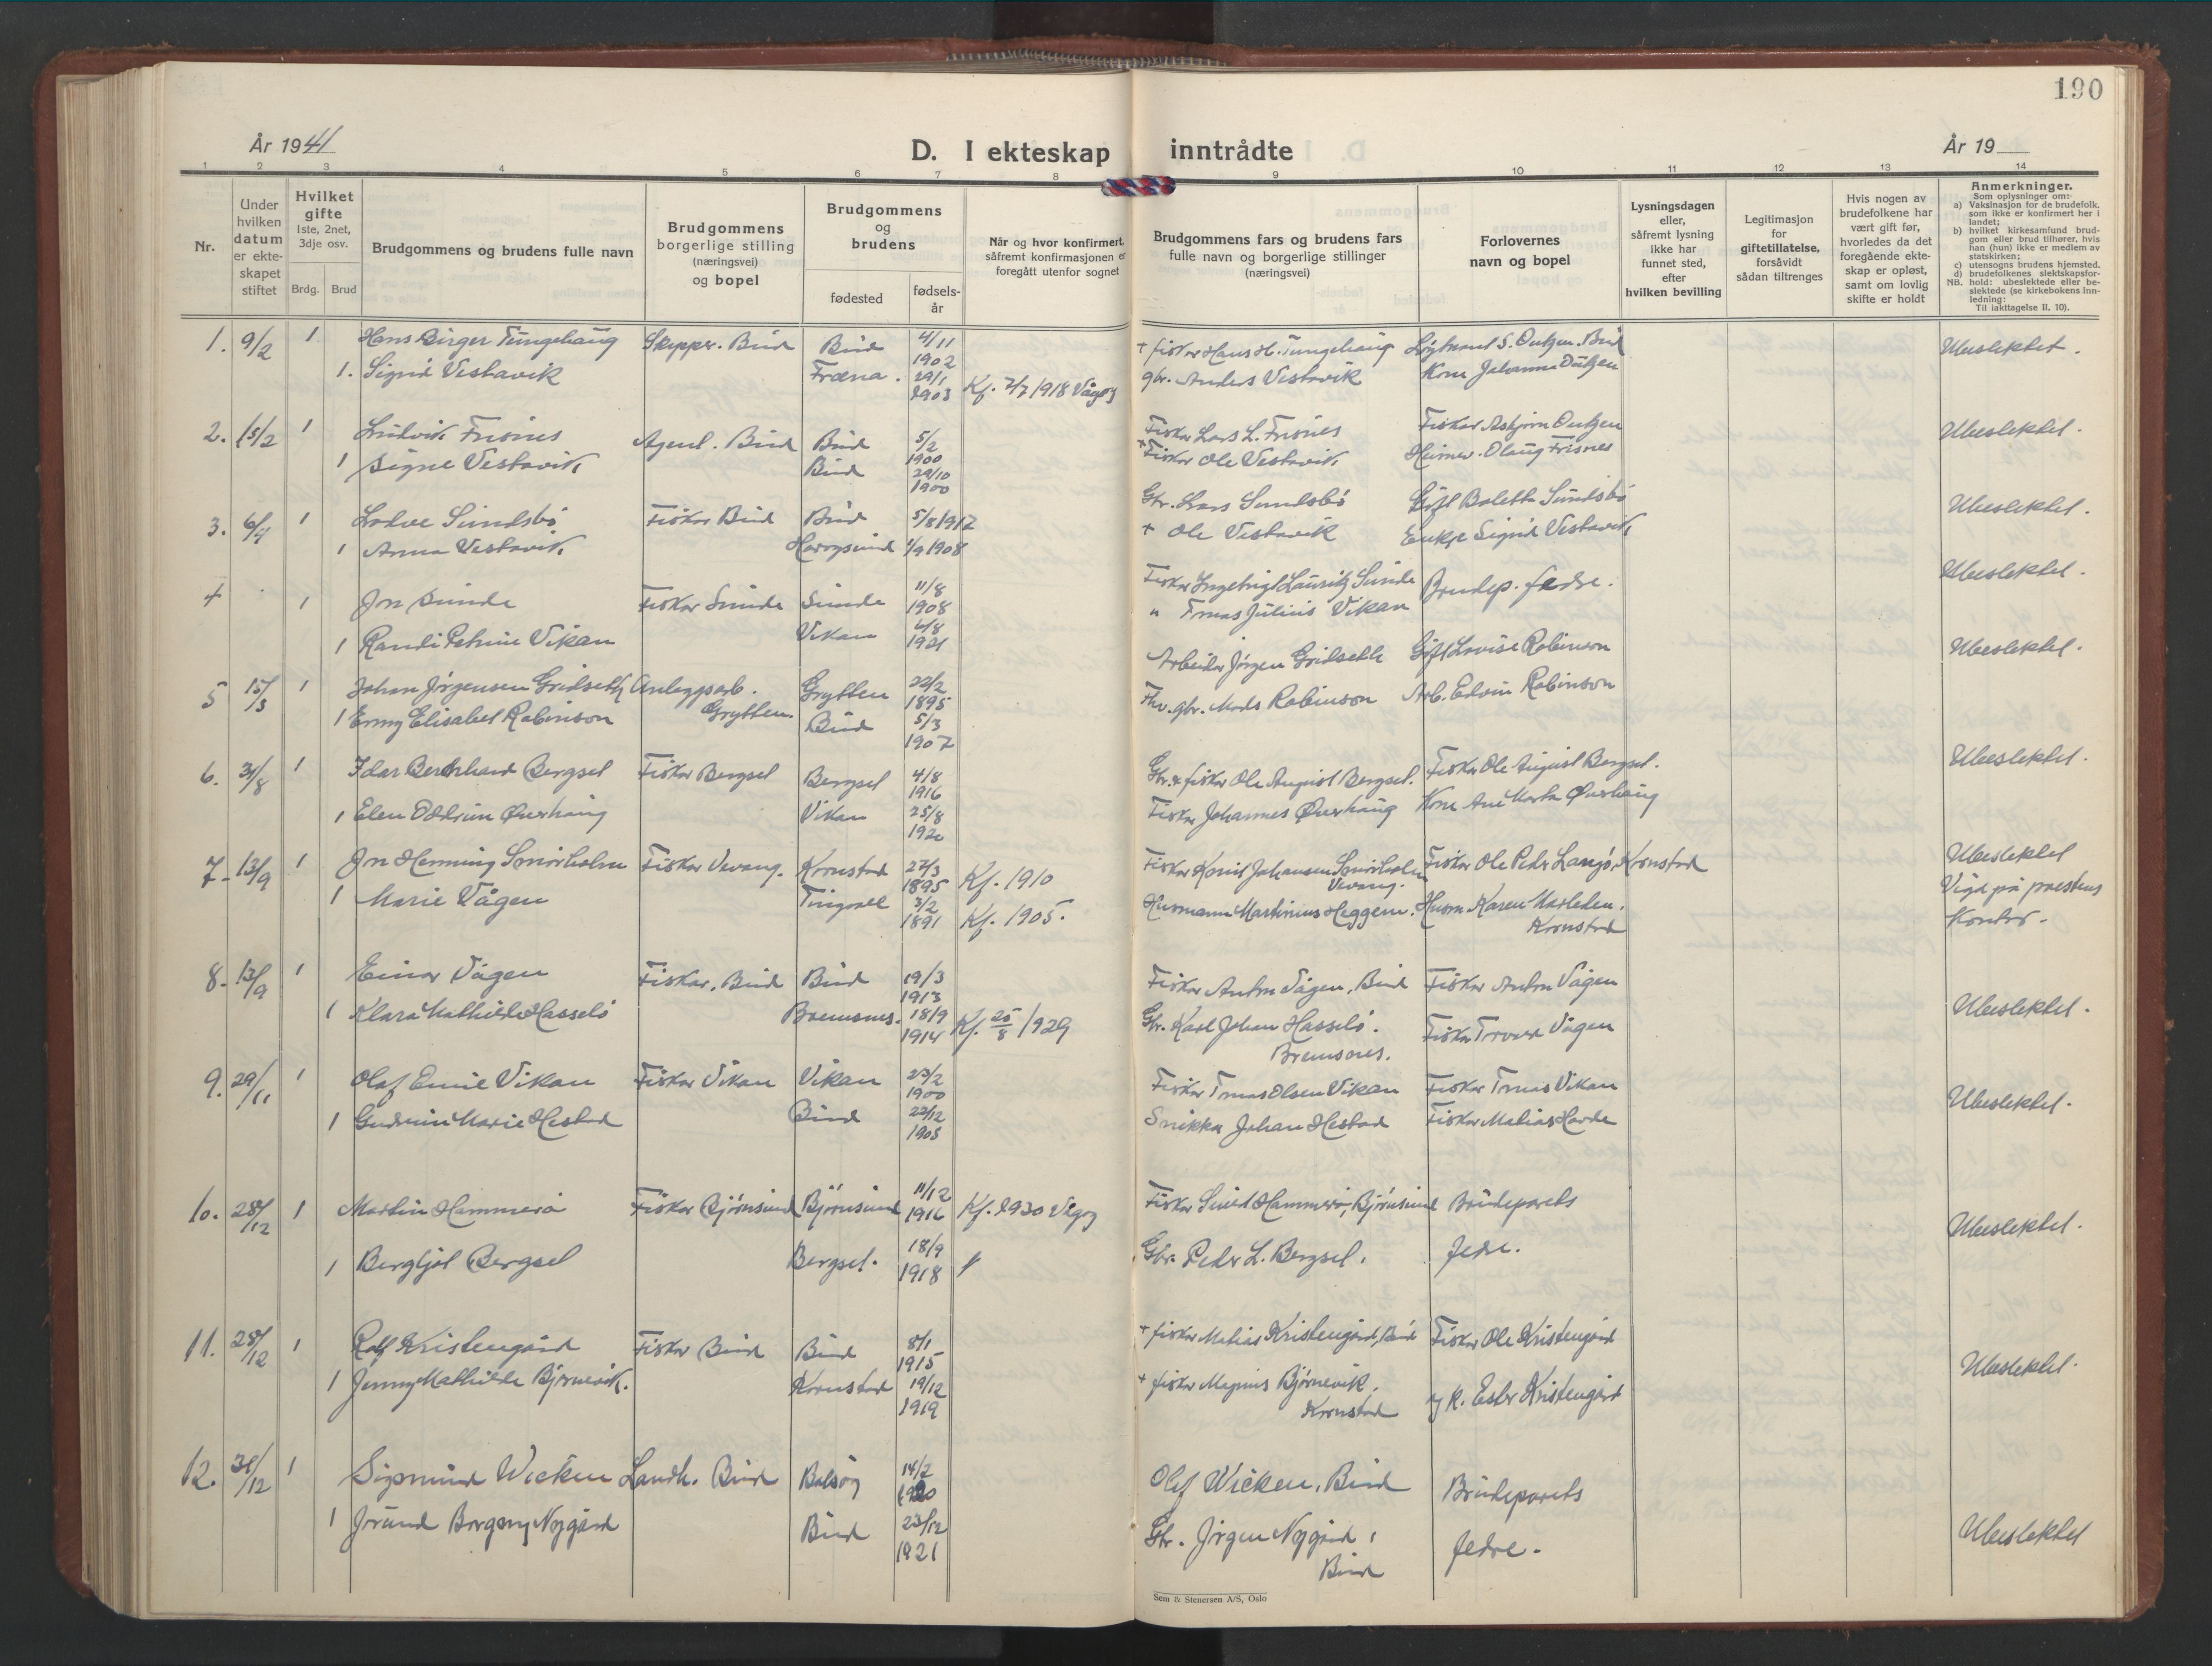 190
År 1941
D. I ekteskap inntrådte
År 19
1 2 3 4 5 6 7 8 9 10 11 12 13 14
Nr.
Under hvilken datum er ekteskapet stiftet
Hvilket gifte 1ste, 2net, 3dje osv.
Brdg. Brud
Brudgommens og brudens fulle navn
Brudgommens borgerlige stilling (næringsvei) og bopel
Brudgommens og brudens
fødested
fødselsår
Når og hvor konfirmert, såfremt konfirmasjonen er foregått utenfor sognet
Brudgommens fars og brudens fars fulle navn og borgerlige stillinger (næringsvei)
Forlovernes navn og bopel
Lysningsdagen eller, såfremt lysning ikke har funnet sted, efter hvilken bevilling
Legitimasjon for giftetillatelse, forsåvidt sådan tiltrenges
Hvis nogen av brudefolkene har vært gift før, hvorledes da det foregående ekteskap er opløst, samt om lovlig skifte er holdt
Anmerkninger.
Som oplysninger om:
a) Vaksinasjon for de brudefolk, som ikke er konfirmert her i landet;
b) hvilket kirkesamfund brudgom eller brud tilhører, hvis han (hun) ikke er medlem av statskirken;
c) utensogns brudens hjemsted.
d) brudefolkenes slektskapsforhold: ubeslektede eller beslektede (se kirkebokens Innledning:
NB. Til iakttagelse II. 10).
1. 9/2 1 Hans Birger Tungehaug Skipper. Bud Bud 4/11 1902 + fiskar Hans H. Tungehaug Løytnant S. Outzen. Bud Ubeslektet.
1. Sigrid Vestavik Fræna. 29/1 1903 Kf. 7/7 1918 Vågøy gbr. Anders Vestavik Kone Johanna Outzen
2. 15/2 1 Ludvik Frisnes Agent. Bud Bud 5/2 1900 Fiskar Lars L. Frisnes Fiskar Asbjørn Outzen Ubeslektet.
1 Signe Vestavik Bud 29/10 1900 + Fiskar Ole Vestavik Heimev. Olaug Frisnes
3. 6/4 1 Lodve Sundsbø Fiskar Bud Bud 5/8 1917 Gbr. Lars Sundsbø Gift Baletta Sundsbø Ubeslektet.
1 Anna Vestavik Harøysund 1/9 1908 + Ole Vestavik Enkje Sigrid Vestavik
4 1 Jon Sunde Fiskar Sunde Sunde 11/8 1908 Fiskar Ingebrigt Lauritz Sunde Brudep. fedre. Ubeslektet.
1 Randi Petrine Vikan Vikan 4/8 1921 " Tomas Julius Vikan
5 15/5 1 Johan Jørgensen Gridseth Anleggsarb. Grytten. Grytten 22/2 1895 Arbeidar Jørgen Gridseth Gift Lovise Robinson Ubeslektet.
1 Enny Elisabet Robinson Bud 5/3 1907 Fhv. gbr. Mads Robinson Arb. Edvin Robinson
6. 31/8 1 Idar Bernhard Bergset Fiskar Bergset Bergset 4/8 1916 Gbr. & fiskar Ole August Bergset. Fiskar Ole August Bergset. Ubeslektet.
1 Elen Oddrun Øverhaug Vikan 25/8 1920 Fiskar Johannes Øverhaug Kone Ane Marta Øverhaug
7. 13/9 1 Jon Henning Smørholm Fiskar Vevang. Kornstad 27/3 1895 Kf. 1910 Fiskar Kornil Johansen Smørholm Vevang. Fiskar Ole Peder Langø, Kornstad Ubeslektet
1 Marie Vågen Tingvoll 3/2 1891 Kf. 1905. Husmann Martinius Heggem. Husm. Karen Kornstad Vigd på prestens kontor.
8. 13/9 1 Einar Vågen Fiskar. Bud Bud 19/3 1913 Fiskar Anton Vågen, Bud Fiskar Anton Vågen
1 Klara Mathilde Hasselø Bremsnes. 18/9 1914 Kf. 25/8 1929 Gbr. Karl Johan Hasselø. Bremsnes. Fiskar Torvald Vågen Ubeslektet.
9. 29/11 1 Olaf Emil Vikan Fiskar Vikan Vikan 23/2 1900 Fiskar Tomas Olsen Vikan Fiskar Tomas Vikan Ubeslektet.
1 Gudrun Marie Hestad Bud 22/12 1905 Snikkar Johan Hestad Fiskar Matias Horde
10. 28/12 1 Martin Hammerø Fiskar Bjørnsund Bjørnsund 11/12 1916 Kf. 1930 Vågøy Fiskar Sivert Hammerø, Bjørnsund Brudeparets Ubeslektet.
1 Bergljot Bergset Bergset. 18/9 1918 Gbr. Peder L. Bergset. fedre.
11. 28/12 1 Rolf Kristengård Fiskar Bud Bud 8/1 1915 + fiskar Matias Kristengård, Bud Fiskar Ole Kristengård
1 Jenny Mathilde Bjørnevik. Kornstad 19/12 1919 + fiskar Magnus Bjørnevik. Kornstad og k. Ester Kristengård Ubeslektet.
12. 31/12 1 Sigmund Wicken Landh. Bud Bolsøy 14/2 1920 Olaf Wicken, Bud Brudeparets
1 Jorund Borgny Nygård Bud 23/12 1921 Gbr. Jørgen Nygård, Bud fedre. Ubeslektet
Sem & Stenersen A/S, Oslo